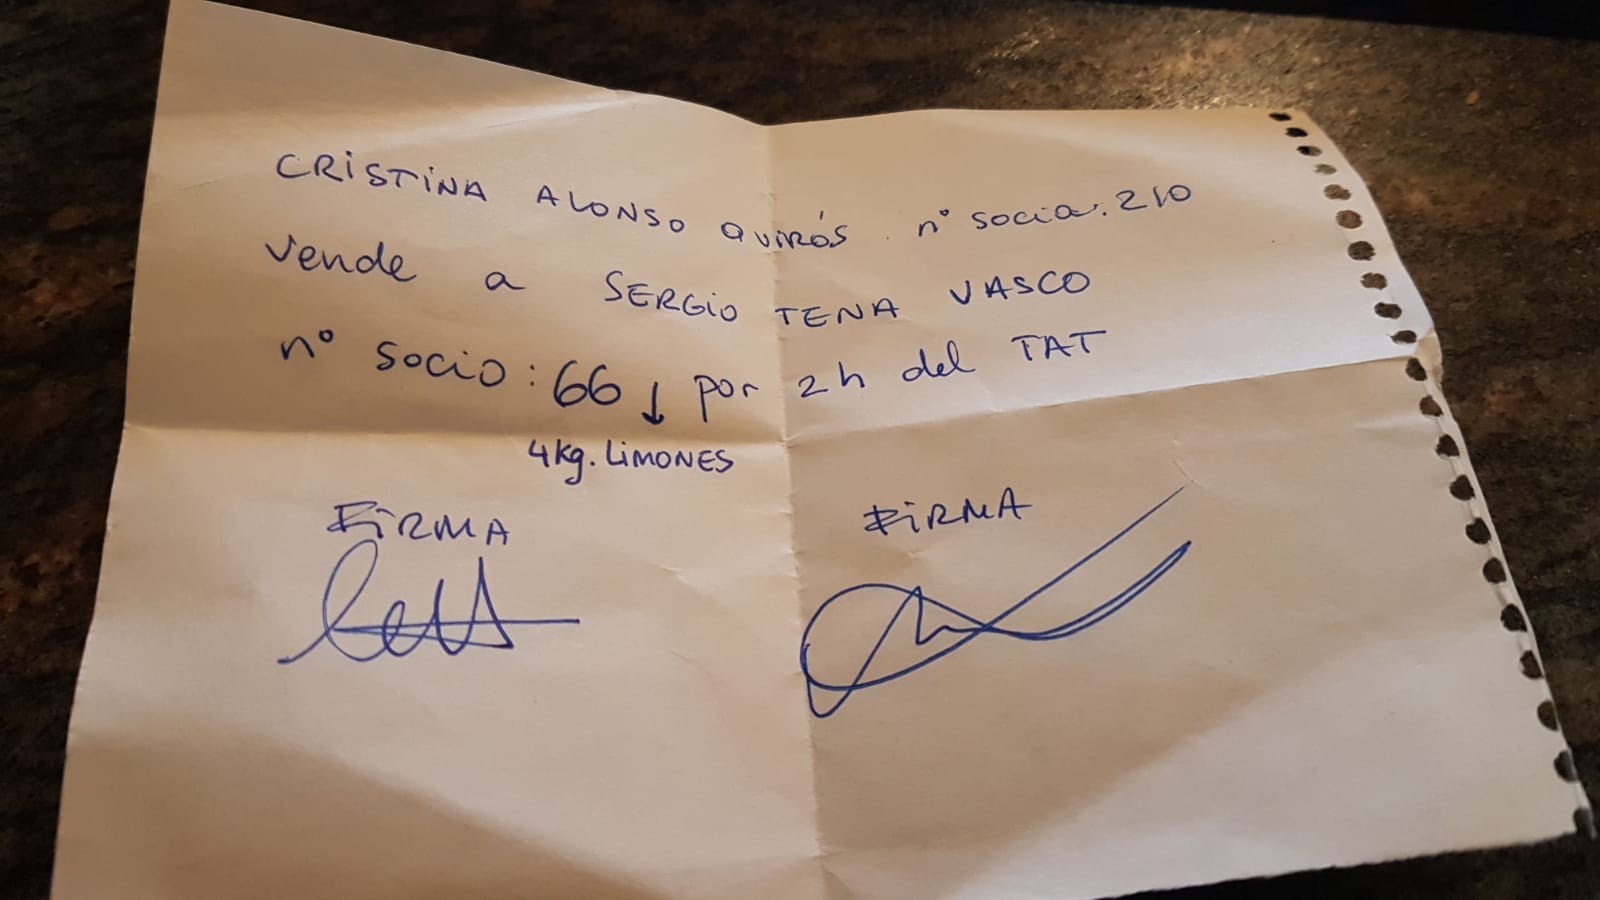 CRISTINA ALONSO QUIRÓS nº socia: 210
vende a SERGIO TENA VASCO
nº socio: 66 ↓ por 2h del TAT
4kg. LIMONES
FIRMA FIRMA